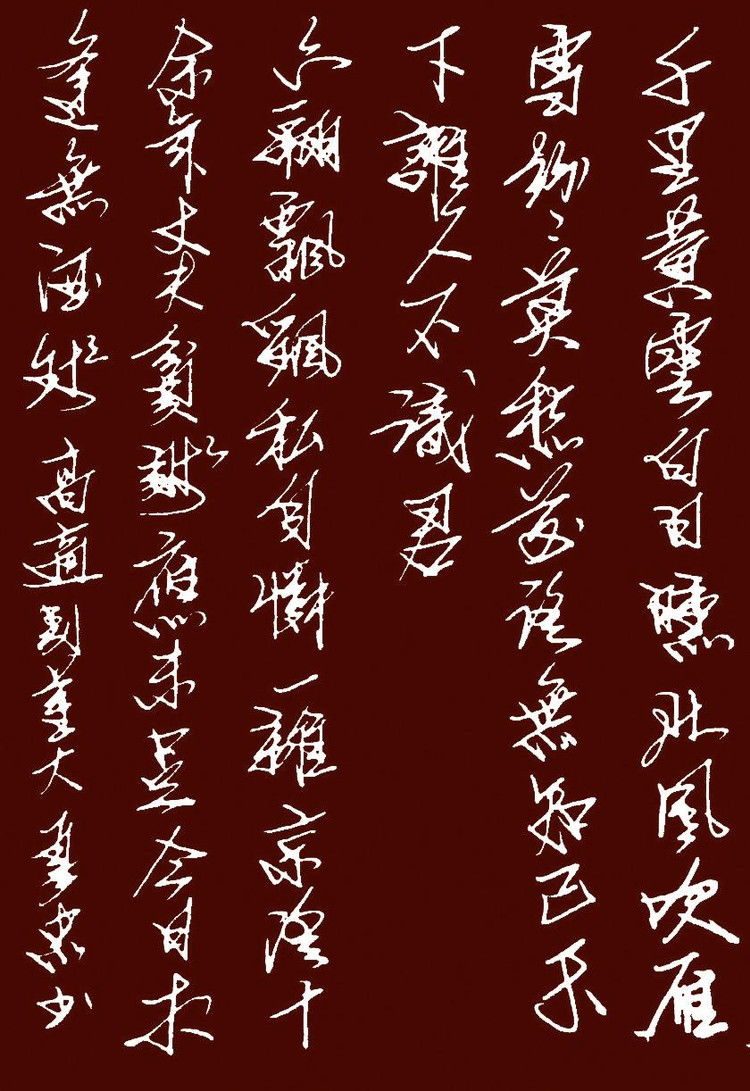 千里黃雲白日曛北風吹雁
雪紛〻莫愁前路無知己天
下誰人不識君
六翮飄颻私自憐一離京洛十
余年丈夫貧賤應未足今日相
逢無酒錢 高適别董大